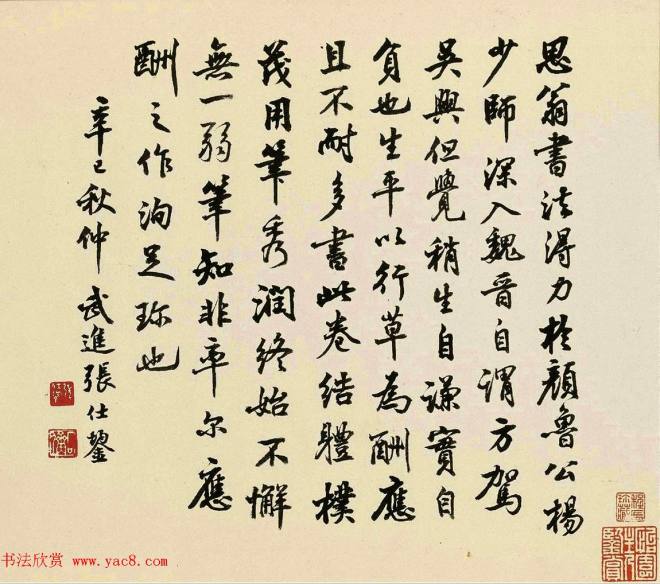 思翁書法得力於顏魯公楊
少師深入魏晉自謂方駕
吳興但覺稍生自謙實自
負也生平以行草為酬應
且不耐多書此卷結體樸
茂用筆秀潤終始不懈
無一弱筆知非率尔應
酬之作洵足珍也
辛巳秋仲武進張仕鋆
书法欣赏 www.yac8.com